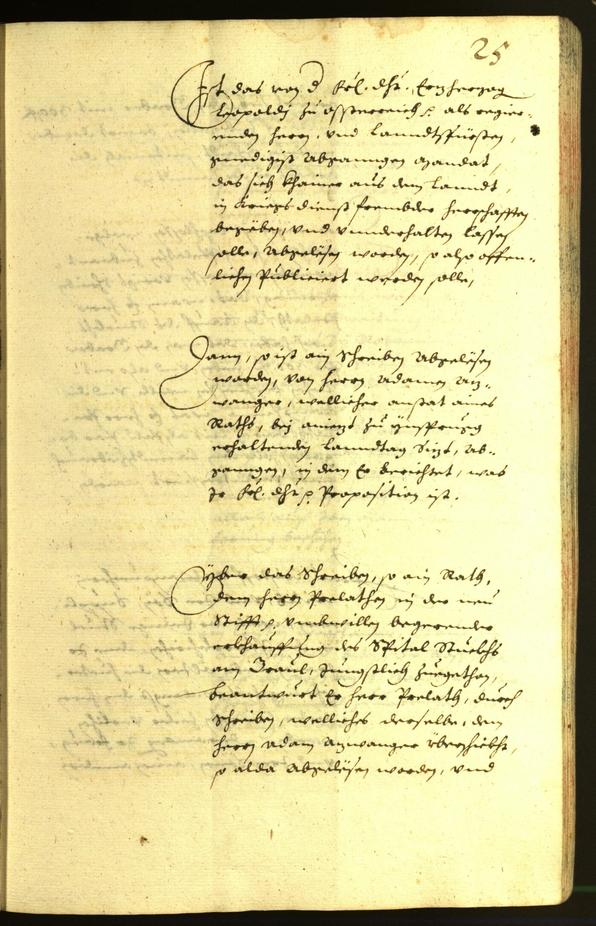 25
Ist das von d. Frl. Dht. Erzherzog
Leopoldj zu Össterreich p. als regier-
enden herrn, und Lanndtsfürsten,
genedigist abganngen Mandat,
das sich khainer aus dem Lanndt,
in Kriegs dienst frembder herrschafften
begeben, und unnderhalten lassen
solle, Abgelesen worden, so also offen-
lichen Publiciert werden solle,
Dann, so ist ain Schreiben Abgelesen
worden, von herrn Adamen Az-
wanger, wellicher anstat aines
Raths, bej aniezt zu Ynsprugg
erhaltenden Lanndtag Sizt, ab-
ganngen, in dem Er berichtet, was
Ir Frl. Dht. p. Proposition ist.
Yber das Schreiben, so ain Rath,
dem herrn Prelathen in der neu
Stifft p. umbwillen begerender
erkhauffung des Spital Stuelchs
am Graul, Jungstlich zuegethan,
beantwurt Er herr Prelath, durch
Schreiben, welliches derselbe, dem
herrn Adam Azwanger überschickht,
so alda abgelesen worden, und